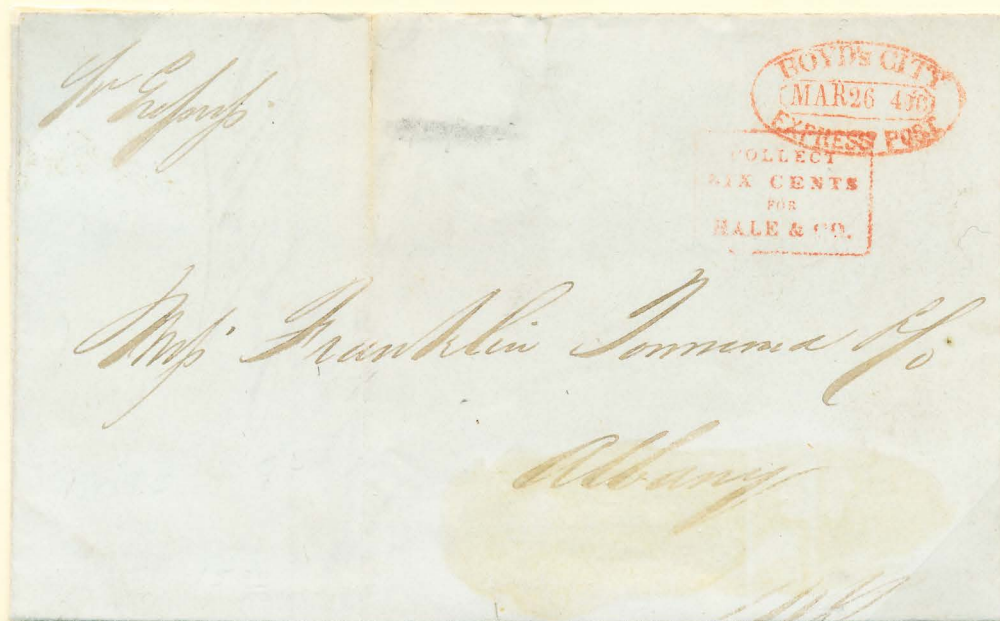 pr Express
BOYD's CITY
MAR 26
EXPRESS POST
COLLECT
SIX CENTS
FOR
HALE & CO.
Messrs Franklin & Co
Albany